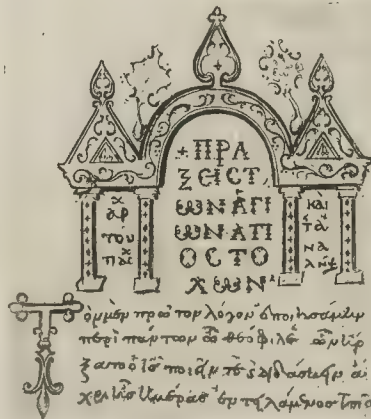 +ΠΡΑ
ΞΕΙϹΤ
ΩΝΑΓΙ
ΩΝΑΠ
ΟϹΤΟ
ΛΩΝ
αρ
του
πας
και
τα
να
Τὸν μὲν πρῶτον λόγον ἐποιησάμην
περὶ πάντων ὦ θεόφιλε ὧν ἤρ
ξατο ὁ ις ποιεῖν τε διδάσκειν ἄ
χρι ἧς ἡμέρας ἐντειλάμενος